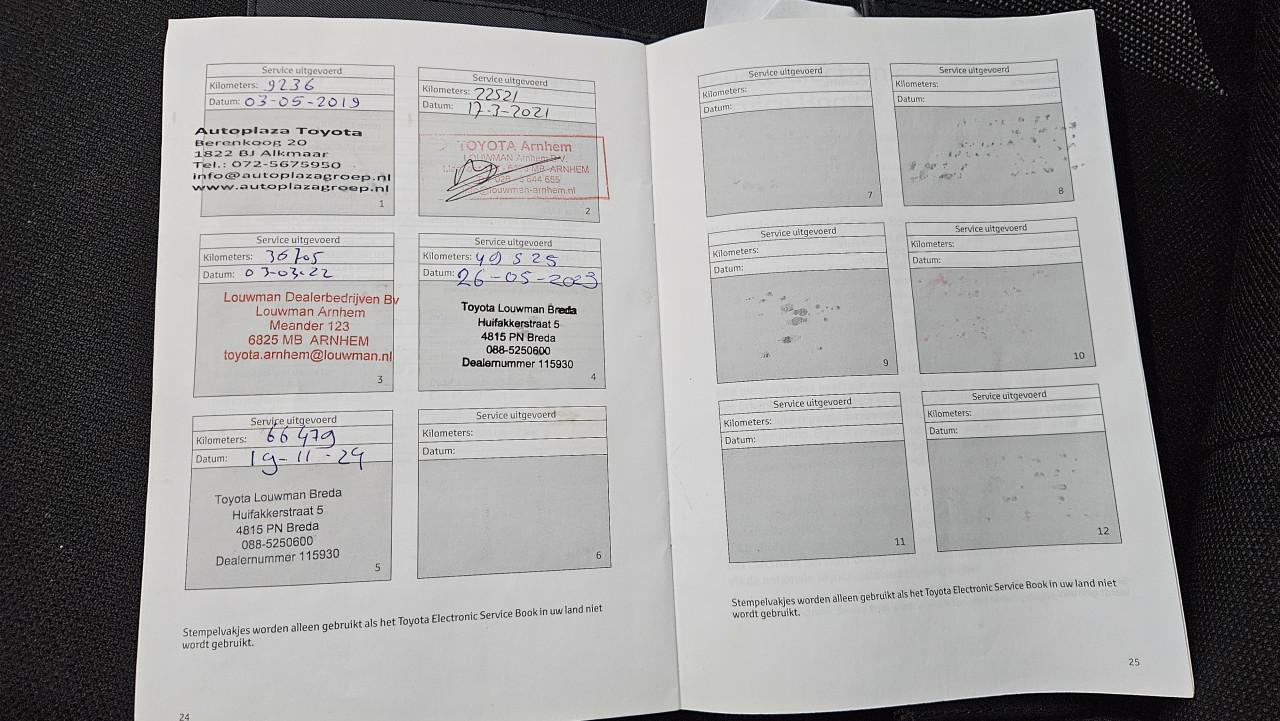 Service uitgevoerd
Kilometers: 9236
Datum: 03-05-2019
Autoplaza Toyota
Berenkoog 20
1822 BJ Alkmaar
Tel.: 072-5675950
info@autoplazagroep.nl
www.autoplazagroep.nl
1
Service uitgevoerd
Kilometers: 22521
Datum: 17-3-2021
TOYOTA Arnhem
LOUWMAN Arnhem B.V.
MB ARNHEM
644 655
@louwman-arnhem.nl
2
Service uitgevoerd
Kilometers: 36705
Datum: 03-03-22
Louwman Dealerbedrijven Bv
Louwman Arnhem
Meander 123
6825 MB ARNHEM
toyota.arnhem@louwman.nl
3
Service uitgevoerd
Kilometers: 49525
Datum: 26-05-2023
Toyota Louwman Breda
Huifakkerstraat 5
4815 PN Breda
088-5250600
Dealernummer 115930
4
Service uitgevoerd
Kilometers: 66479
Datum: 19-11-24
Toyota Louwman Breda
Huifakkerstraat 5
4815 PN Breda
088-5250600
Dealernummer 115930
5
Service uitgevoerd
Kilometers:
Datum:
6
Stempelvakjes worden alleen gebruikt als het Toyota Electronic Service Book in uw land niet
wordt gebruikt.
24
Service uitgevoerd
Kilometers:
Datum:
7
Service uitgevoerd
Kilometers:
Datum:
8
Service uitgevoerd
Kilometers:
Datum:
9
Service uitgevoerd
Kilometers:
Datum:
10
Service uitgevoerd
Kilometers:
Datum:
11
Service uitgevoerd
Kilometers:
Datum:
12
Stempelvakjes worden alleen gebruikt als het Toyota Electronic Service Book in uw land niet
wordt gebruikt.
25